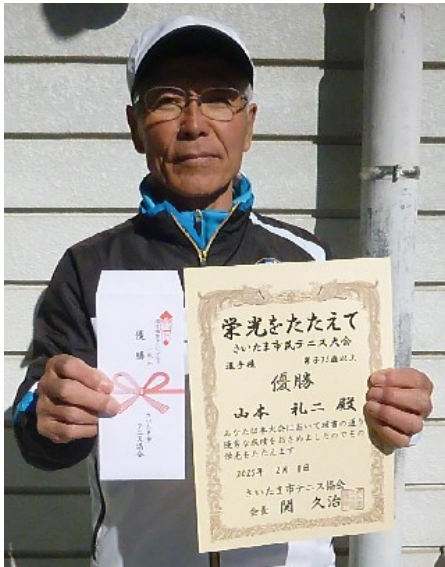 優勝
さいたま市
テニス協会
栄光をたたえて
さいたま市民テニス大会
選手権 男子75歳以上
優勝
山本 礼二 殿
あなたは本大会において頭書の通り
優秀な成績をおさめましたのでその
栄光をたたえます
2025年 2月 8日
さいたま市テニス協会
会長 関 久治